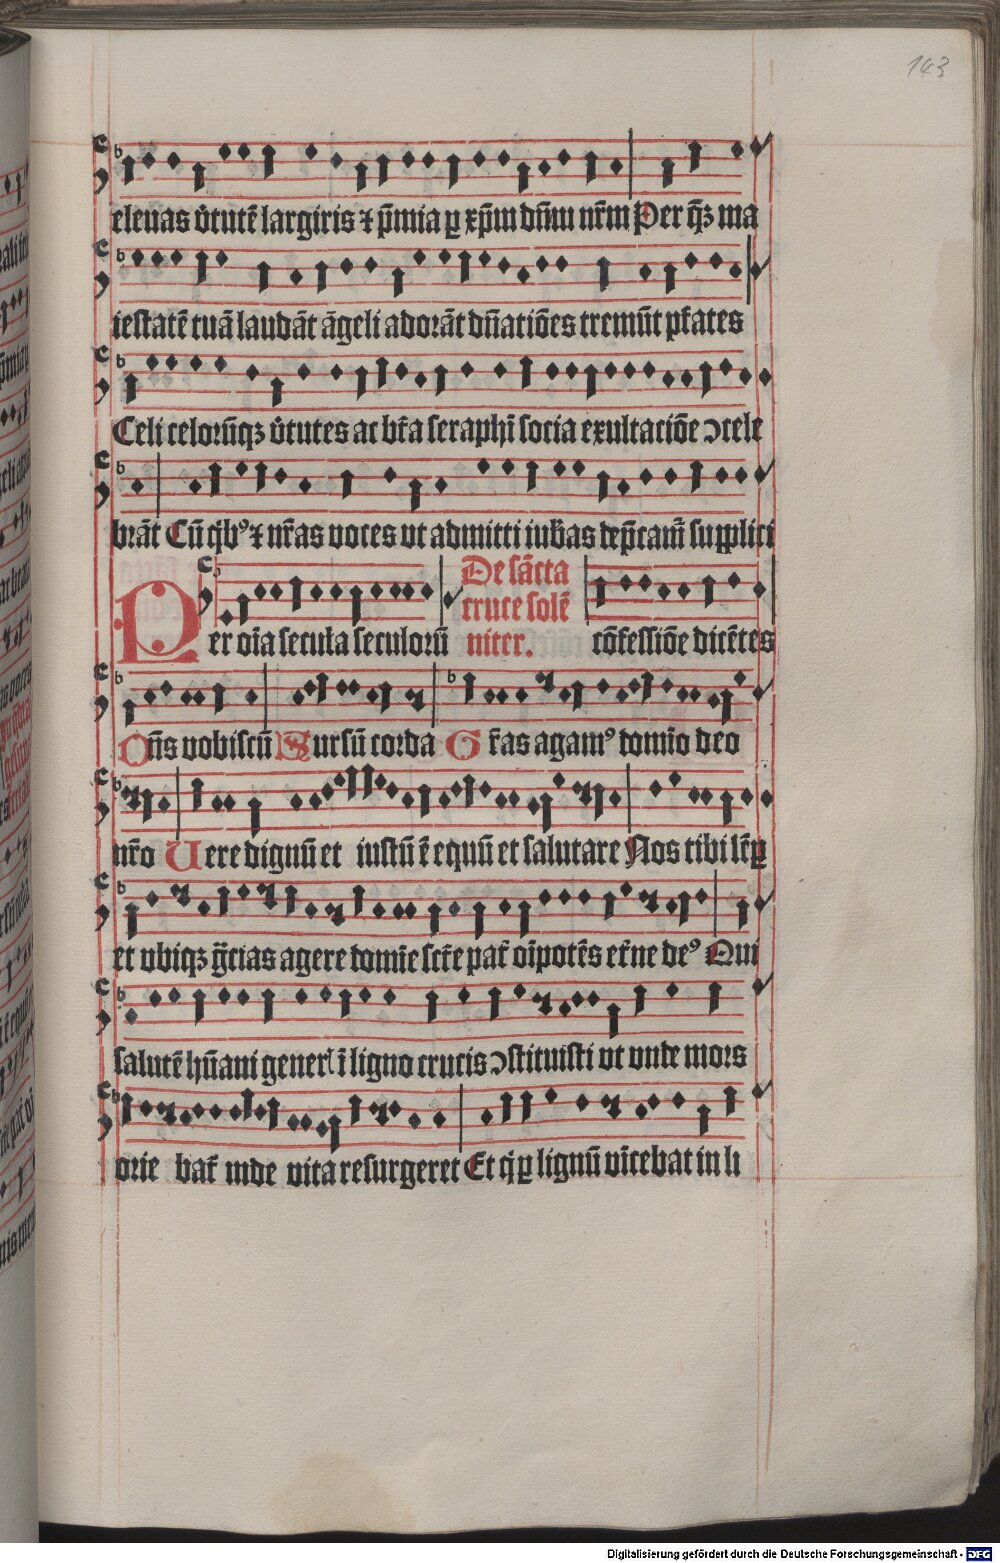 143
eleuas v̄tutē largiris ⁊ p̄mia ꝑ xp̄m dn̄m nr̄m Per q̄ꝫ ma
iestatē tuā laudāt āgeli adorāt dn̄atiōes tremūt ptāates
Celi celorūqꝫ v̄tutes ac bt̄a seraphī socia exultaciōe ↄcele
brāt Cū qͥbꝰ ⁊ nr̄as voces vt admitti iub̄as dep̄camͬ supplici
Per oīa secula seculorū De sācta
cruce solē
niter. cōfessiōe dicētes
Dn̄s vobiscū Sursū corda Gr̄as agamꝰ domīo deo
nr̄o Uere dignū et iustū ē equū et salutare Nos tibi sēꝑ
et vbiqꝫ gr̄cias agere domīe sct̄e pat̄ oīpotēs et̄ne deꝰ Qui
salutē hūani generꝭ ī ligno crucis ↄstituisti vt vnde mors
orie bat̄ inde vita resurgeret Et qͥ ꝑ lignū vīcebat in li
Digitalisierung gefördert durch die Deutsche Forschungsgemeinschaft - DFG